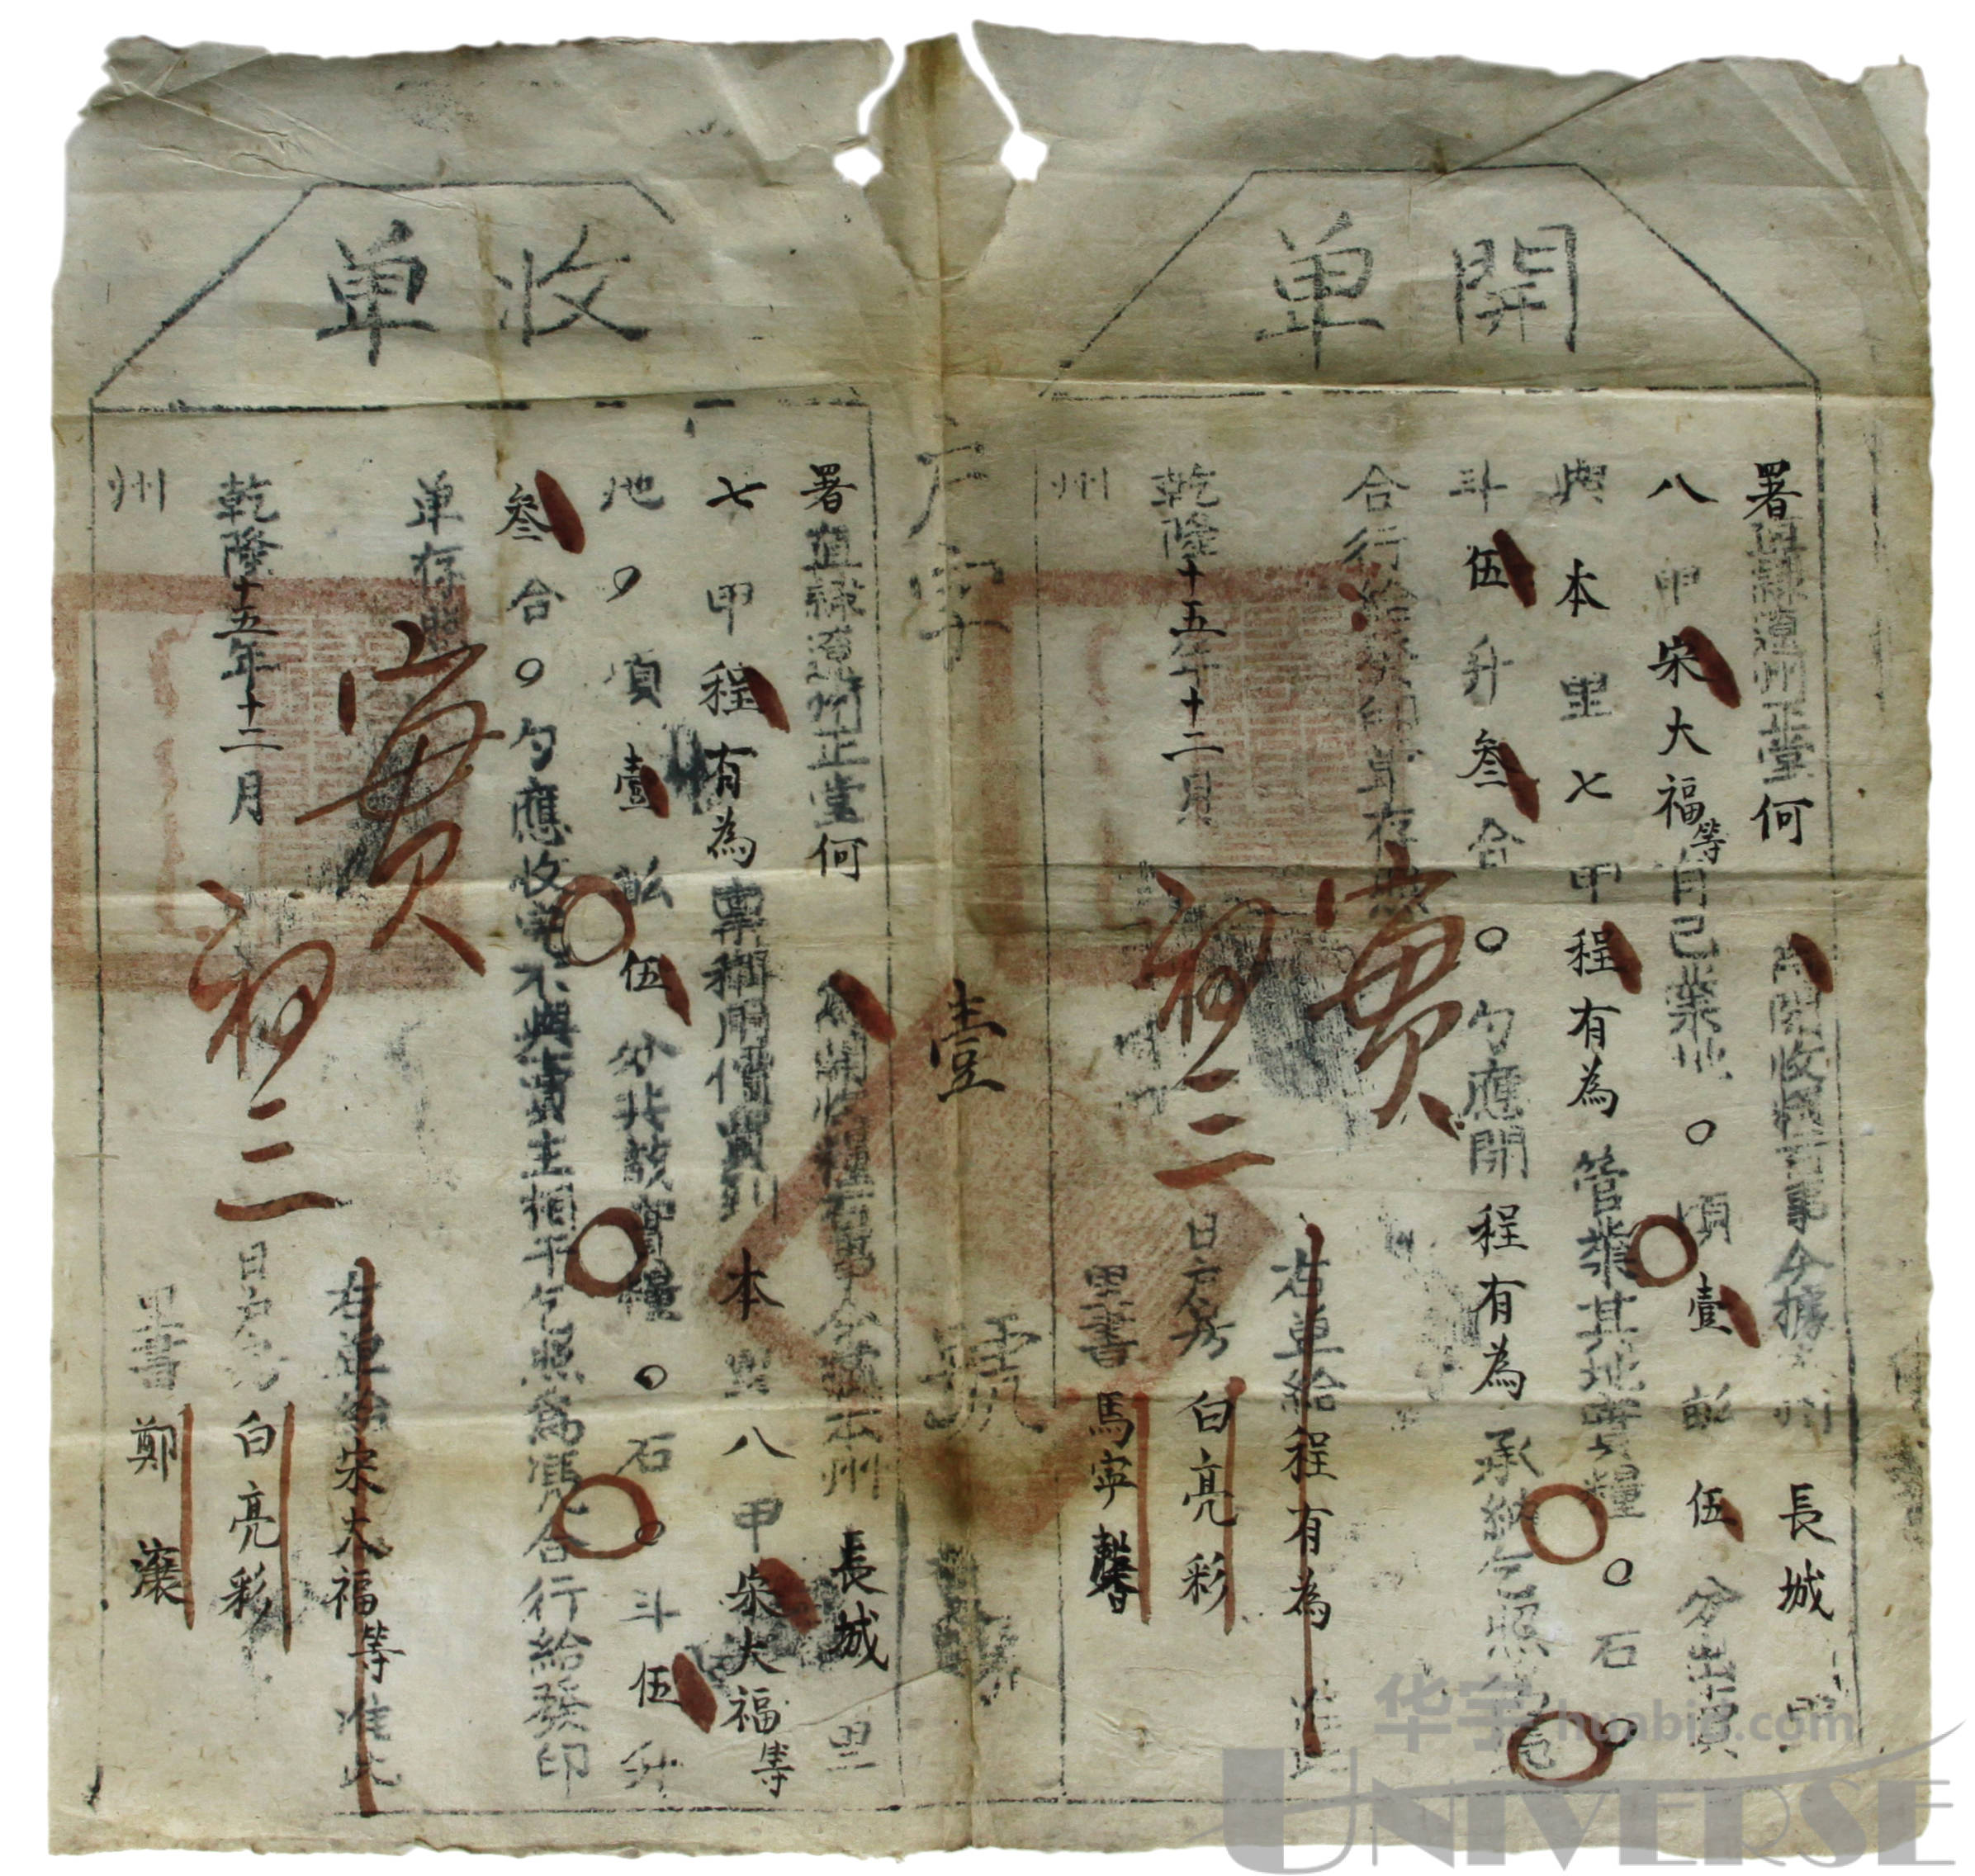 開單
署直隸遵州正堂何 為開收糧石事今據本州 長城 里
八甲宋大福等自己業地〇頃壹畝伍分出賣
與本里七甲程有為管業其地實糧〇石〇
斗伍升叁合〇勺應開程有為承納乞照為
合行給發印單存照
右單給程有為准此
乾隆十五年十二月初三日戶房白亮彩
州 里書馬寧馨
實
戶字壹號
收單
署直隸遵州正堂何 為開收糧石事今據本州 長城 里
七甲程有為票稱用價買到本里八甲宋大福等
地〇頃壹畝伍分共該實糧〇石〇斗伍升
叁合〇勺應收完不與賣主相干乞照為憑合行給發印
單存照
右單給宋大福等准此
乾隆十五年十二月初三日戶房白亮彩
州 里書鄭滾
實
华宇 huabid.com
UNIVERSE